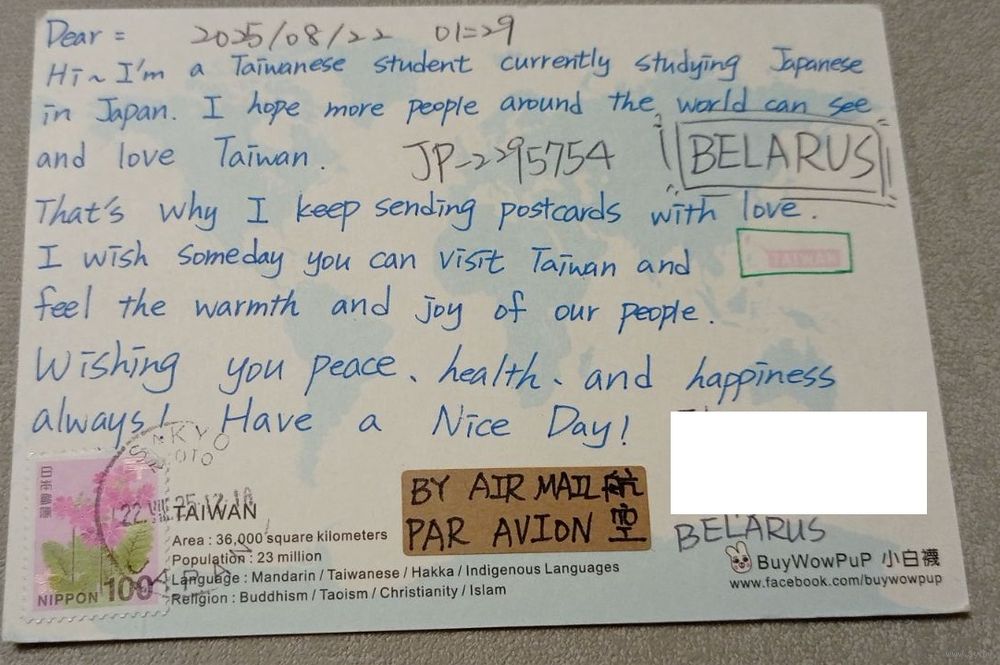 Dear = 2025/08/22 01=29
Hi~ I'm a Taiwanese student currently studying Japanese
in Japan. I hope more people around the world can see
and love Taiwan. JP-2295754 BELARUS
That's why I keep sending postcards with love.
I wish someday you can visit Taiwan and
TAIWAN
feel the warmth and joy of our people.
Wishing you peace、health、and happiness
always! Have a Nice Day!
日本郵便
NIPPON 100
22 VIII 25 12-18
TAIWAN
Area : 36,000 square kilometers
Population : 23 million
Language : Mandarin / Taiwanese / Hakka / Indigenous Languages
Religion : Buddhism / Taoism / Christianity / Islam
BY AIR MAIL 航
PAR AVION 空
BELARUS
BuyWowPuP 小白襪
www.facebook.com/buywowpup